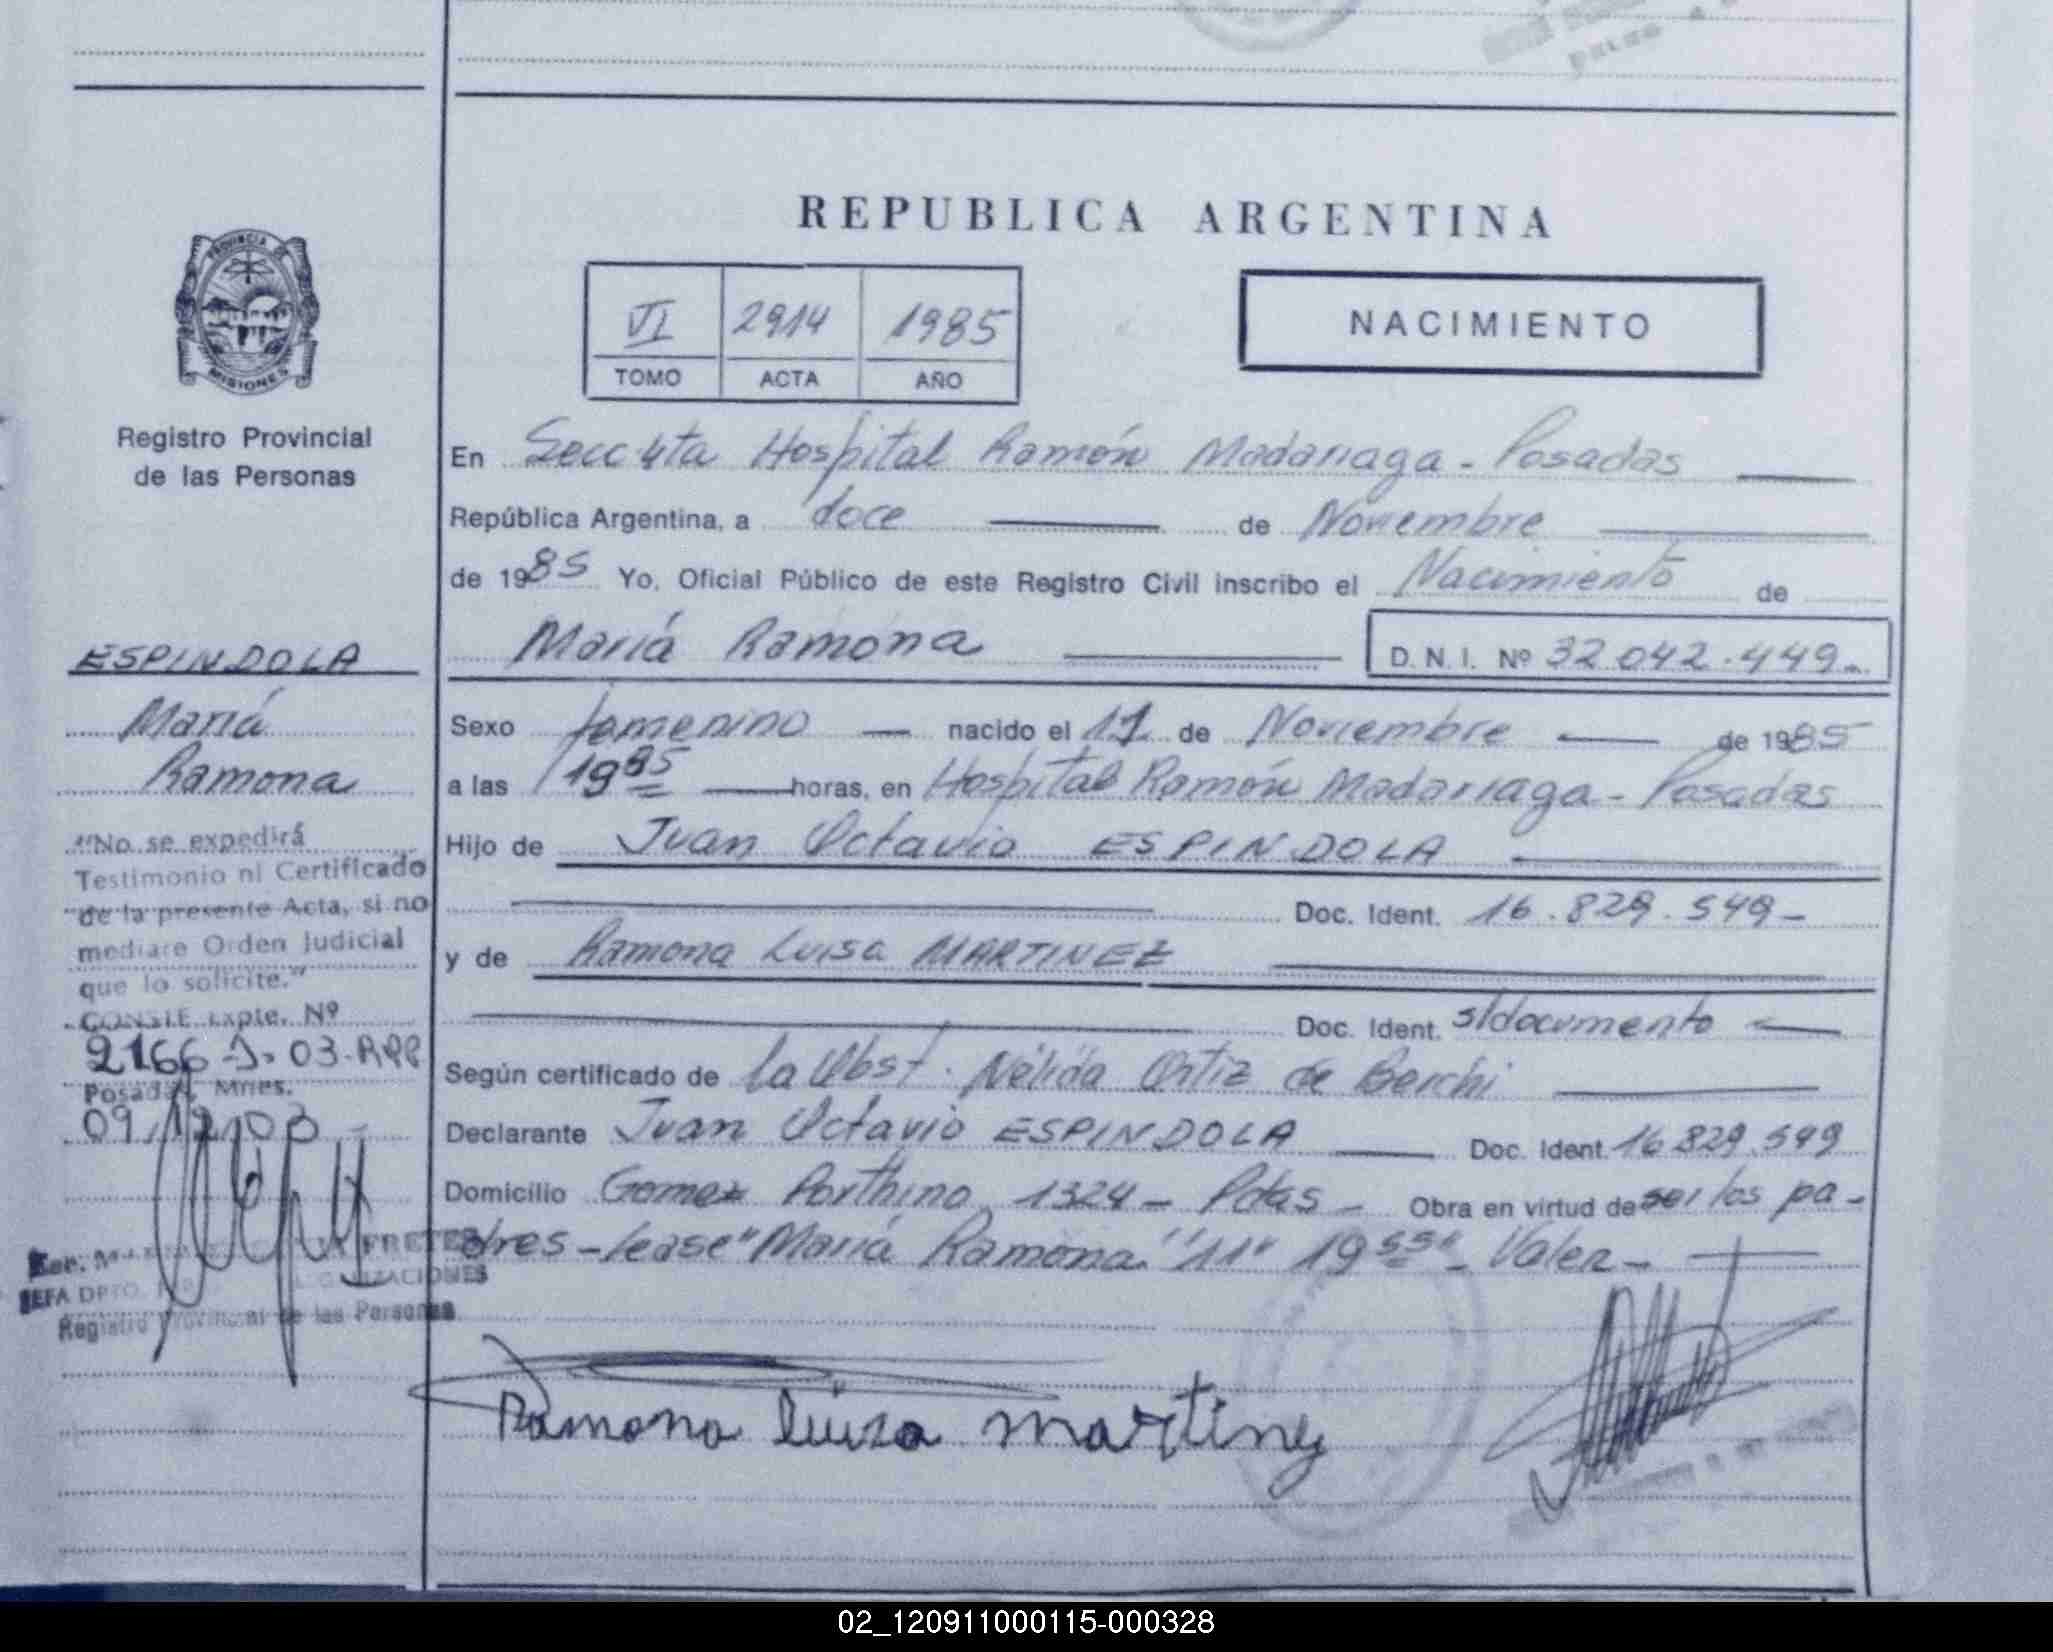 REPUBLICA ARGENTINA
VI 2914 1985
TOMO ACTA AÑO
NACIMIENTO
PROVINCIA DE
MISIONES
Registro Provincial
de las Personas
ESPINDOLA
María
Ramona
"No se expedirá
Testimonio ni Certificado
de la presente Acta, si no
mediare Orden Judicial
que lo solicite."
CONSTE Expte. Nº
2166-J-03-RPP
Posadas, Mnes.
09/12/03
FRETES
JEFA DPTO.
Registro Provincial de las Personas
En Secc 4ta Hospital Ramón Madariaga - Posadas
República Argentina, a doce de Noviembre
de 1985 Yo, Oficial Público de este Registro Civil inscribo el Nacimiento de
María Ramona D.N.I. Nº 32.042.449
Sexo femenino nacido el 11 de Noviembre de 1985
a las horas, en Hospital Ramón Madariaga - Posadas
Hijo de Juan Octavio ESPINDOLA
Doc. Ident. 16.829.549-
y de Ramona Luisa MARTINEZ
Doc. Ident. s/documento
Según certificado de la Obst. Nélida Ortiz de Berchi
Declarante Juan Octavio ESPINDOLA Doc. Ident. 16.829.549
Domicilio Gomez Porthino 1324 - Pdas - Obra en virtud de ser los pa-
dres - lease "María Ramona" "11" 19 55" - Valen -
Ramona Luiza martinez
02_120911000115-000328